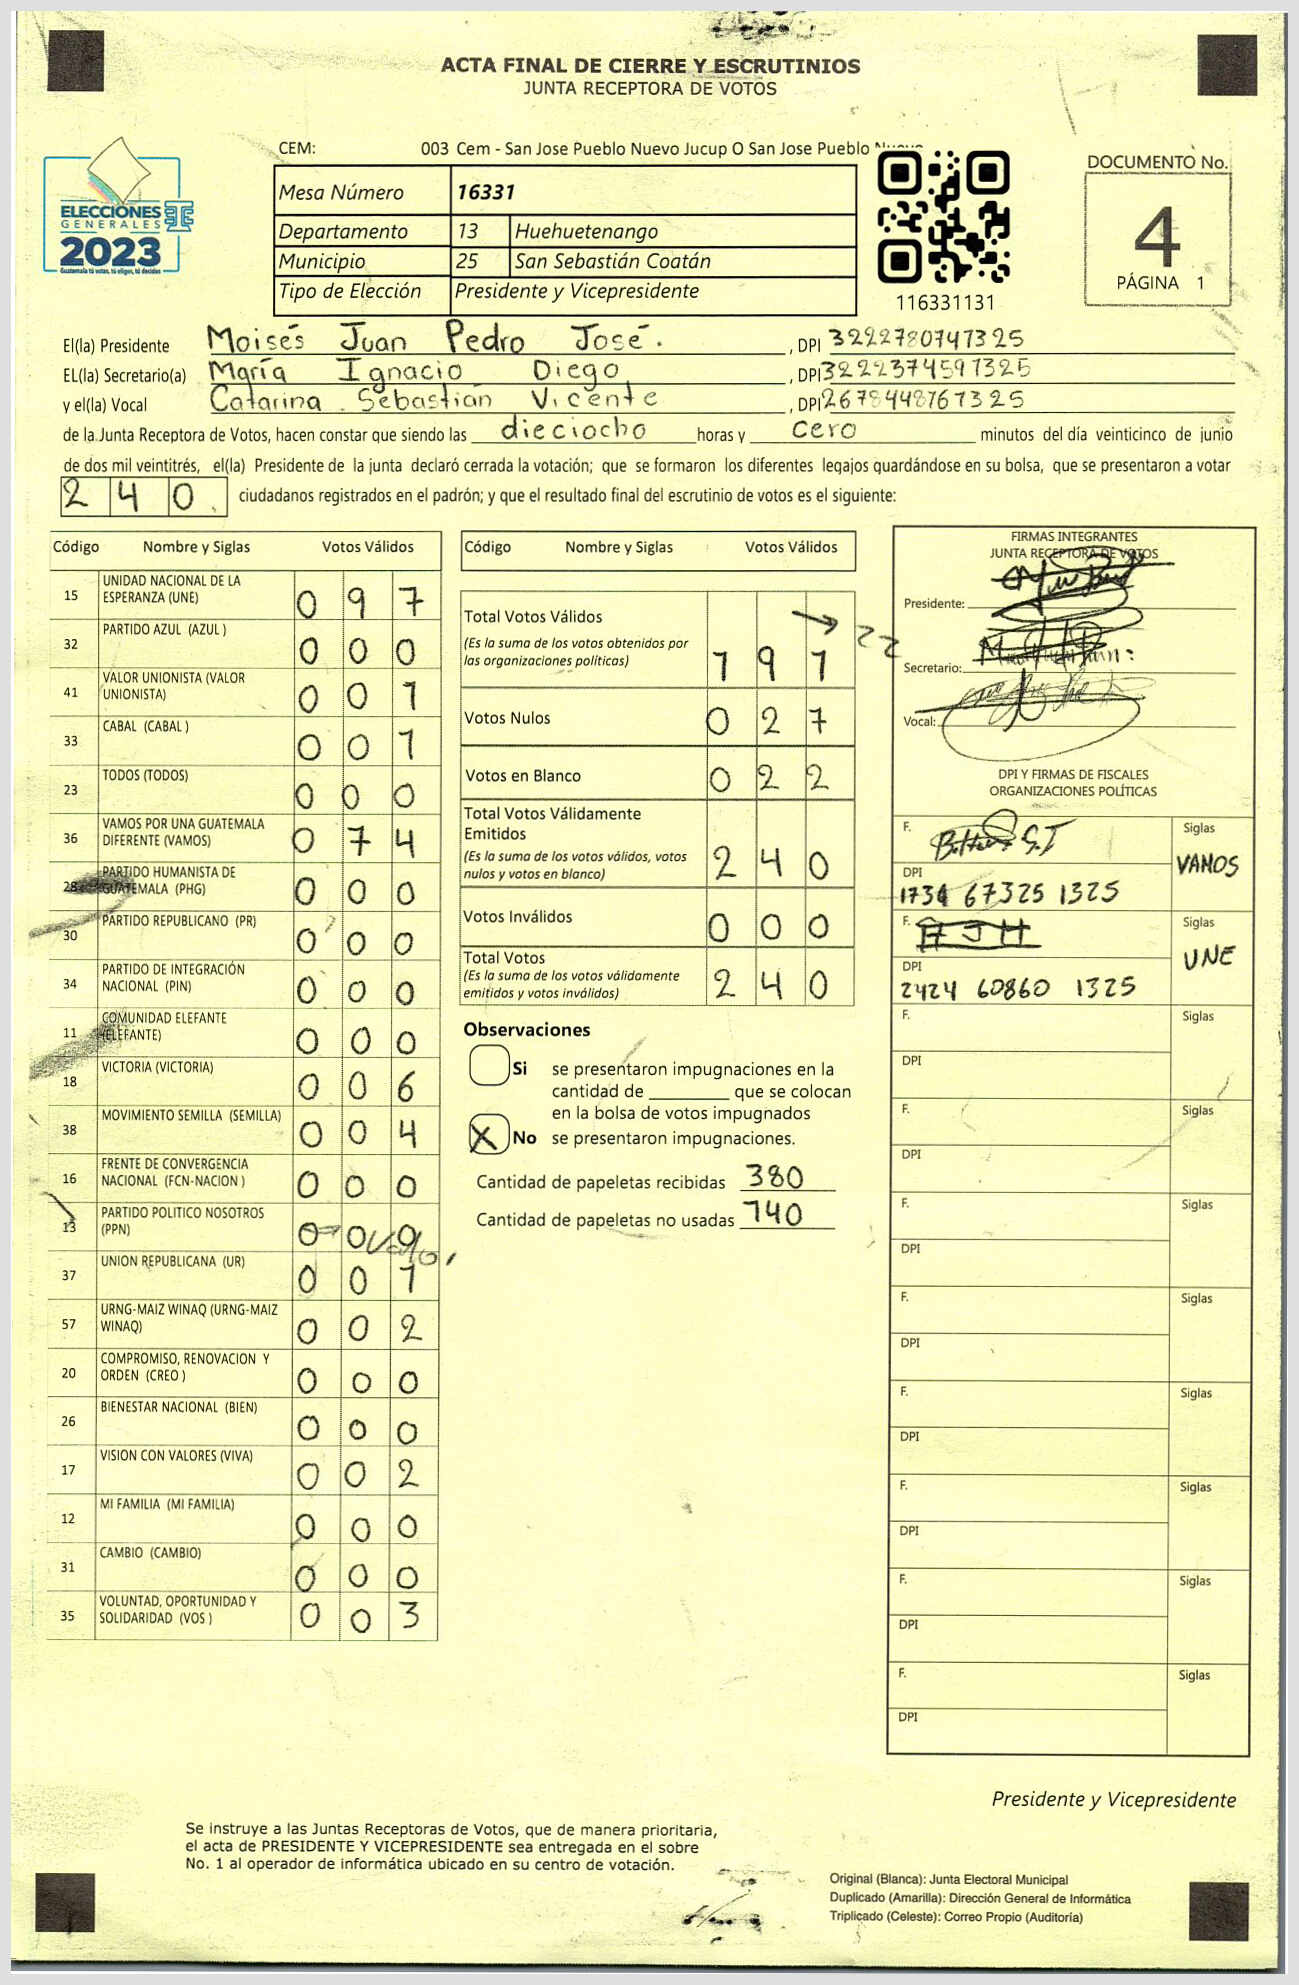 ACTA FINAL DE CIERRE Y ESCRUTINIOS
JUNTA RECEPTORA DE VOTOS
CEM: 003 Cem - San Jose Pueblo Nuevo Jucup O San Jose Pueblo
ELECCIONES
GENERALES
2023
Guatemala tú votas, tú eliges, tú decides
Mesa Número 16331
Departamento 13 Huehuetenango
Municipio 25 San Sebastián Coatán
Tipo de Elección Presidente y Vicepresidente
116331131
DOCUMENTO No.
4
PÁGINA 1
El(la) Presidente Moisés Juan Pedro José. , DPI 3222780747325
EL(la) Secretario(a) María Ignacio Diego , DPI 3222374597325
y el(la) Vocal Catarina Sebastián Vicente , DPI 2678448767325
de la Junta Receptora de Votos, hacen constar que siendo las dieciocho horas y cero minutos del día veinticinco de junio
de dos mil veintitrés, el(la) Presidente de la junta declaró cerrada la votación; que se formaron los diferentes legajos guardándose en su bolsa, que se presentaron a votar
240. ciudadanos registrados en el padrón; y que el resultado final del escrutinio de votos es el siguiente:
Código Nombre y Siglas Votos Válidos
15 UNIDAD NACIONAL DE LA ESPERANZA (UNE) 0 9 7
32 PARTIDO AZUL (AZUL ) 0 0 0
41 VALOR UNIONISTA (VALOR UNIONISTA) 0 0 1
33 CABAL (CABAL ) 0 0 1
23 TODOS (TODOS) 0 0 0
36 VAMOS POR UNA GUATEMALA DIFERENTE (VAMOS) 0 7 4
28 PARTIDO HUMANISTA DE GUATEMALA (PHG) 0 0 0
30 PARTIDO REPUBLICANO (PR) 0 0 0
34 PARTIDO DE INTEGRACIÓN NACIONAL (PIN) 0 0 0
11 COMUNIDAD ELEFANTE (ELEFANTE) 0 0 0
18 VICTORIA (VICTORIA) 0 0 6
38 MOVIMIENTO SEMILLA (SEMILLA) 0 0 4
16 FRENTE DE CONVERGENCIA NACIONAL (FCN-NACION ) 0 0 0
13 PARTIDO POLITICO NOSOTROS (PPN) 0 0 0
37 UNION REPUBLICANA (UR) 0 0 1
57 URNG-MAIZ WINAQ (URNG-MAIZ WINAQ) 0 0 2
20 COMPROMISO, RENOVACION Y ORDEN (CREO ) 0 0 0
26 BIENESTAR NACIONAL (BIEN) 0 0 0
17 VISION CON VALORES (VIVA) 0 0 2
12 MI FAMILIA (MI FAMILIA) 0 0 0
31 CAMBIO (CAMBIO) 0 0 0
35 VOLUNTAD, OPORTUNIDAD Y SOLIDARIDAD (VOS ) 0 0 3
Código Nombre y Siglas Votos Válidos
Total Votos Válidos → 22
(Es la suma de los votos obtenidos por
las organizaciones políticas) 1 9 1
Votos Nulos 0 2 7
Votos en Blanco 0 2 2
Total Votos Válidamente
Emitidos
(Es la suma de los votos válidos, votos
nulos y votos en blanco) 2 4 0
Votos Inválidos 0 0 0
Total Votos
(Es la suma de los votos válidamente
emitidos y votos inválidos) 2 4 0
Observaciones
Si se presentaron impugnaciones en la
cantidad de ________ que se colocan
en la bolsa de votos impugnados
X No se presentaron impugnaciones.
Cantidad de papeletas recibidas 380
Cantidad de papeletas no usadas 140
FIRMAS INTEGRANTES
JUNTA RECEPTORA DE VOTOS
Presidente:
Secretario:
Vocal:
DPI Y FIRMAS DE FISCALES
ORGANIZACIONES POLÍTICAS
F. Siglas
VAMOS
DPI
1734 67325 1325
F. AJH Siglas
UNE
DPI
2424 60860 1325
F. Siglas
DPI
F. Siglas
DPI
F. Siglas
DPI
F. Siglas
DPI
F. Siglas
DPI
F. Siglas
DPI
F. Siglas
DPI
F. Siglas
DPI
Presidente y Vicepresidente
Se instruye a las Juntas Receptoras de Votos, que de manera prioritaria,
el acta de PRESIDENTE Y VICEPRESIDENTE sea entregada en el sobre
No. 1 al operador de informática ubicado en su centro de votación.
Original (Blanca): Junta Electoral Municipal
Duplicado (Amarilla): Dirección General de Informática
Triplicado (Celeste): Correo Propio (Auditoría)